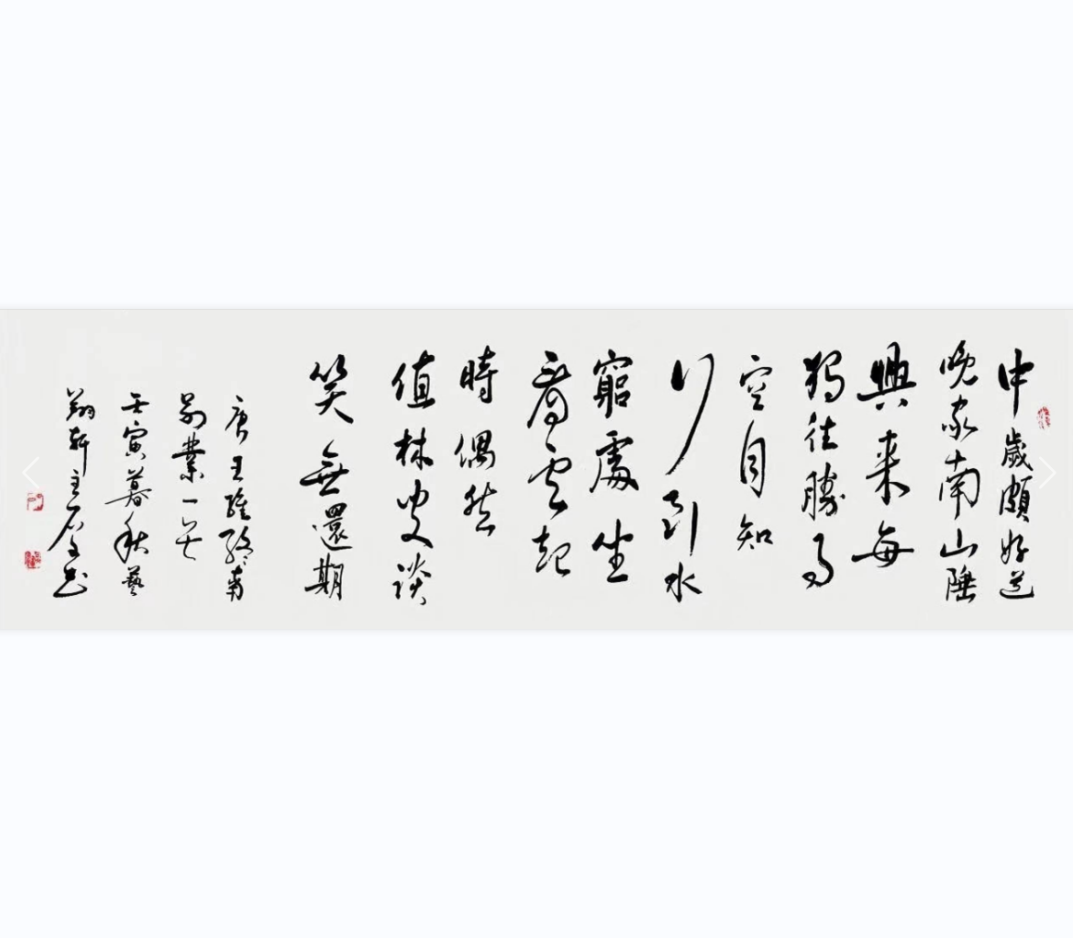 中歲頗好道
晚家南山陲
興来每
獨往勝事
空自知
行到水
窮處坐
看云起
時偶然
值林叟談
笑無還期
唐王維終南
别業一首
壬寅暮秋藝
翔軒主
书